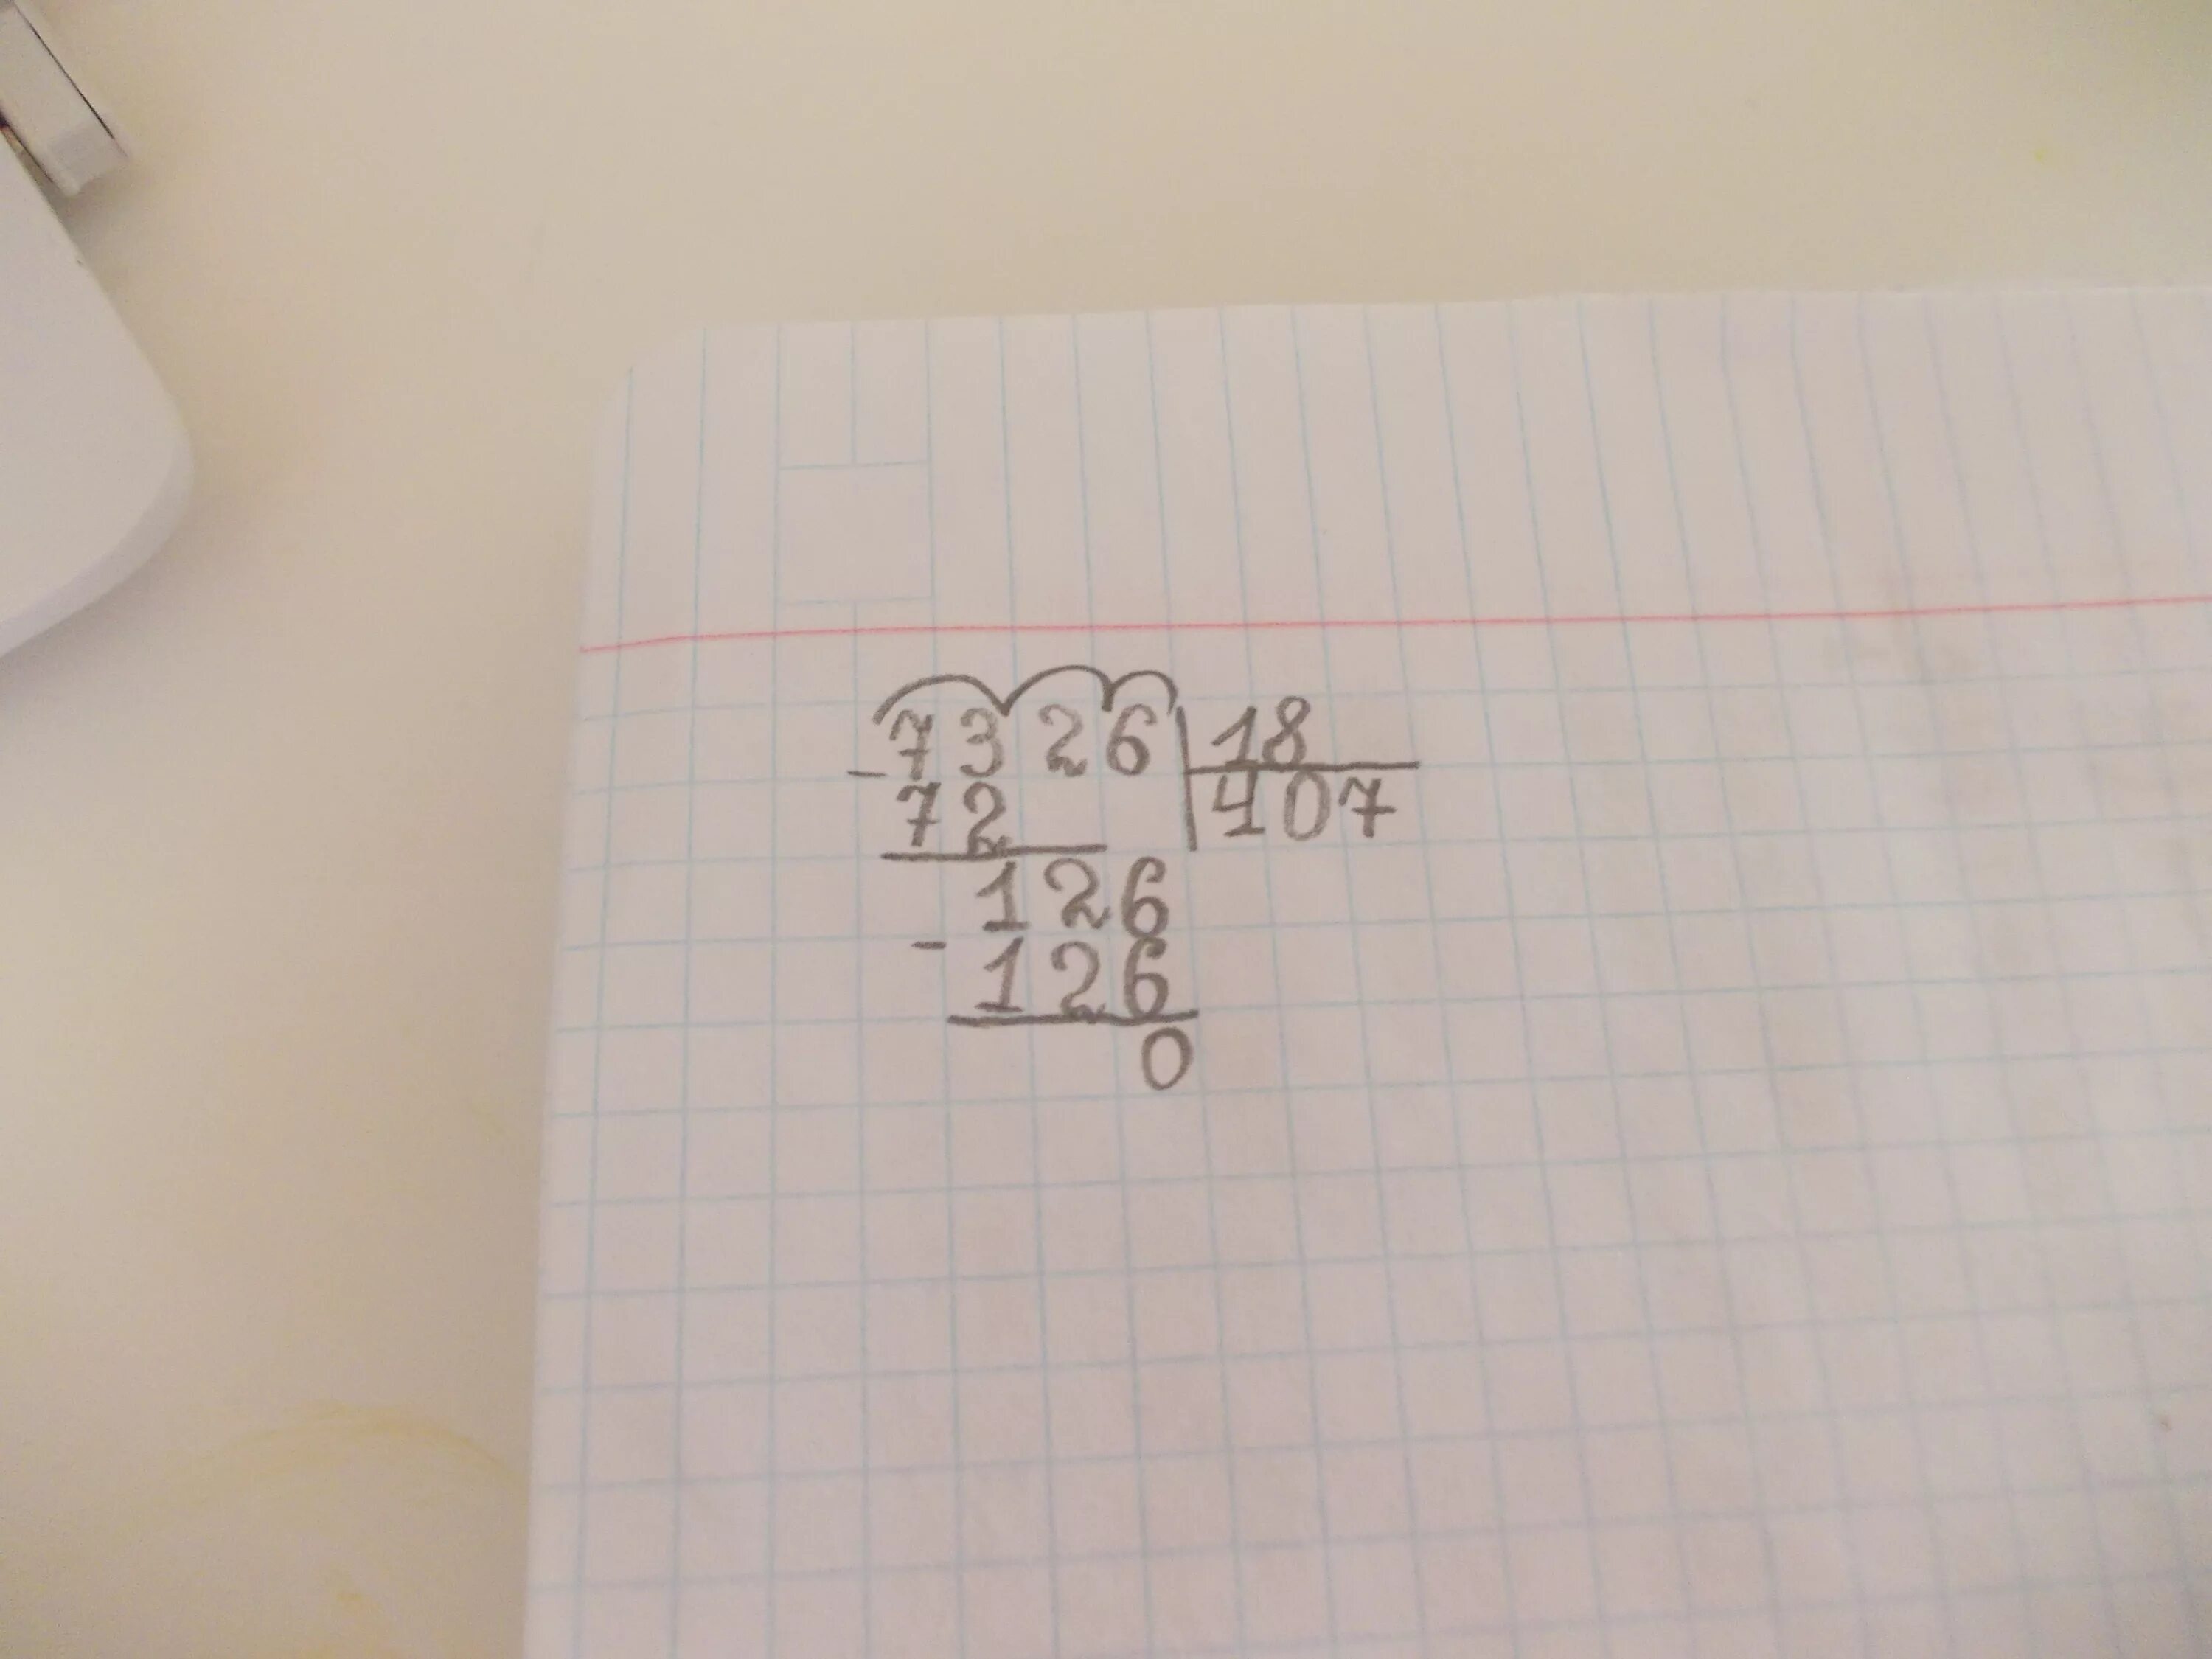 -7326|18
72 |407
-126
126
0